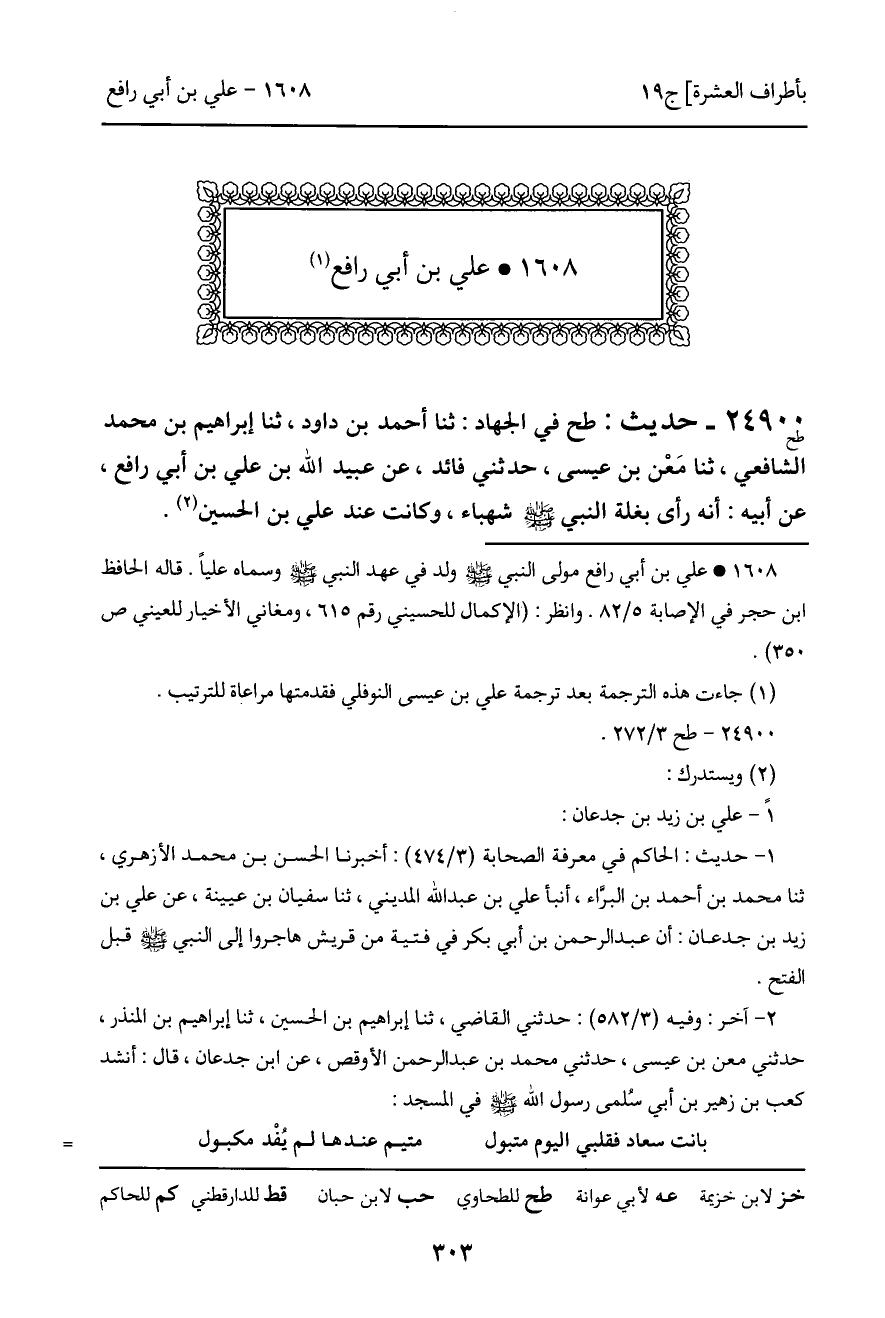 بأطراف العشرة] ج١٩
١٦٠٨ - علي بن أبي رافع
١٦٠٨ ● علي بن أبي رافع(١)
٢٤٩٠٠ ـ حديث : طح في الجهاد : ثنا أحمد بن داود ، ثنا إبراهيم بن محمد
طح
الشافعي ، ثنا مَعْن بن عيسى ، حدثني فائد ، عن عبيد الله بن علي بن أبي رافع ،
عن أبيه : أنه رأى بغلة النبي ﷺ شهباء ، وكانت عند علي بن الحسين(٢) .
١٦٠٨ ● علي بن أبي رافع مولى النبي ﷺ ولد في عهد النبي ﷺ وسماه علياً . قاله الحافظ
ابن حجر في الإصابة ٨٢/٥ . وانظر : (الإكمال للحسيني رقم ٦١٥ ، ومغاني الأخيار للعيني ص
٣٥٠) .
(١) جاءت هذه الترجمة بعد ترجمة علي بن عيسى النوفلي فقدمتها مراعاة للترتيب .
٢٤٩٠٠ - طح ٢٧٢/٣ .
(٢) ويستدرك :
اً - علي بن زيد بن جدعان :
١- حديث : الحاكم في معرفة الصحابة (٤٧٤/٣) : أخبرنا الحسن بن محمد الأزهري ،
ثنا محمد بن أحمد بن البرَّاء ، أنبأ علي بن عبدالله المديني ، ثنا سفيان بن عيينة ، عن علي بن
زيد بن جدعان : أن عبدالرحمن بن أبي بكر في فتية من قريش هاجروا إلى النبي ﷺ قبل
الفتح .
٢- آخر : وفيه (٥٨٢/٣) : حدثني القاضي ، ثنا إبراهيم بن الحسين ، ثنا إبراهيم بن المنذر ،
حدثني معن بن عيسى ، حدثني محمد بن عبدالرحمن الأوقص ، عن ابن جدعان ، قال : أنشد
كعب بن زهير بن أبي سُلمى رسول الله ﷺ في المسجد :
بانت سعاد فقلبي اليوم متبول متيم عندها لم يُفْد مكبول =
خز لابن خزيمة عه لأبي عوانة طح للطحاوي حب لابن حبان قط للدارقطني كم للحاكم
٣٠٣